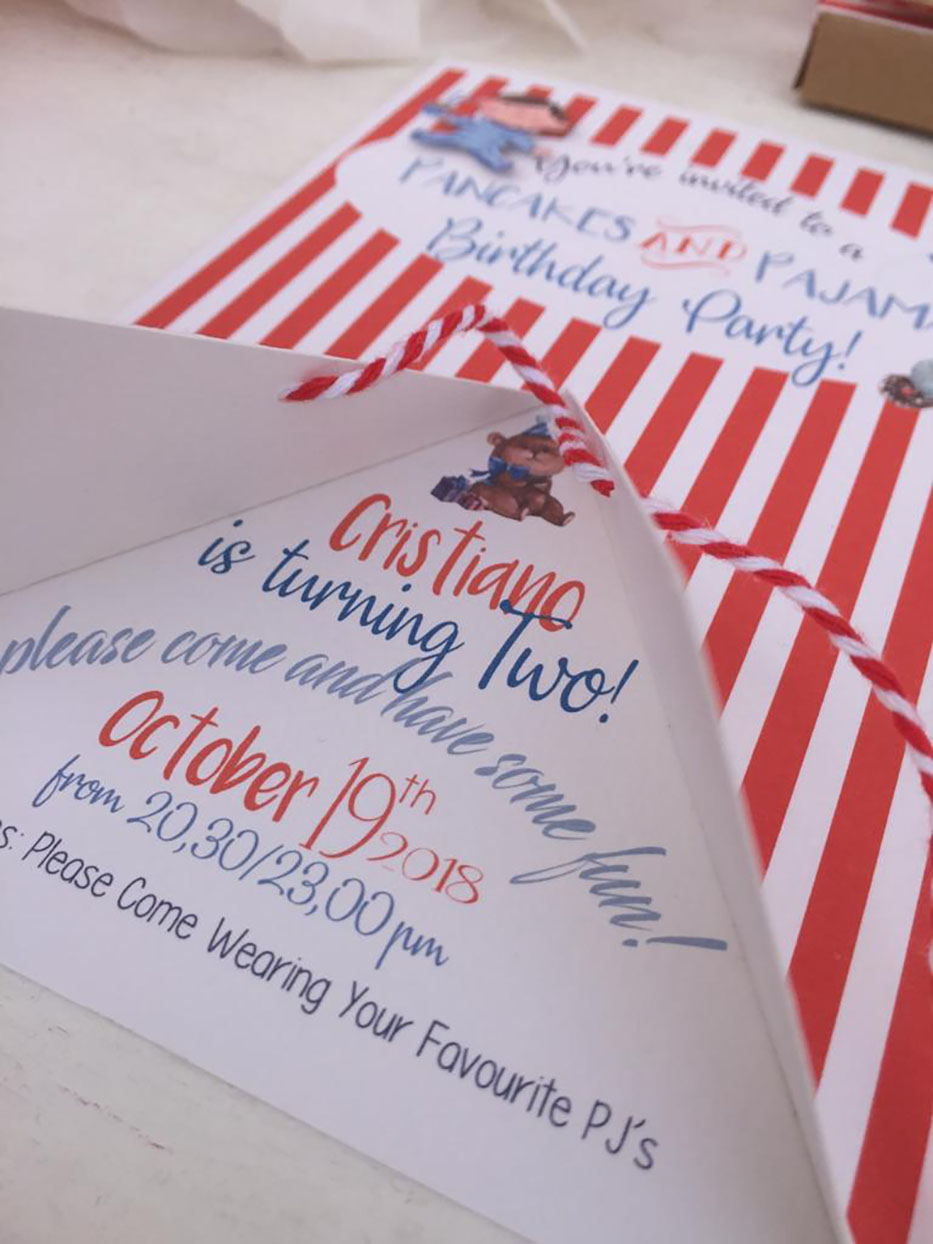 You're invited to a
PANCAKES AND PAJAM
Birthday Party!
Cristiano
is turning Two!
please come and have some fun!
October 19th 2018
from 20,30/23,00 pm
s: Please Come Wearing Your Favourite PJ's